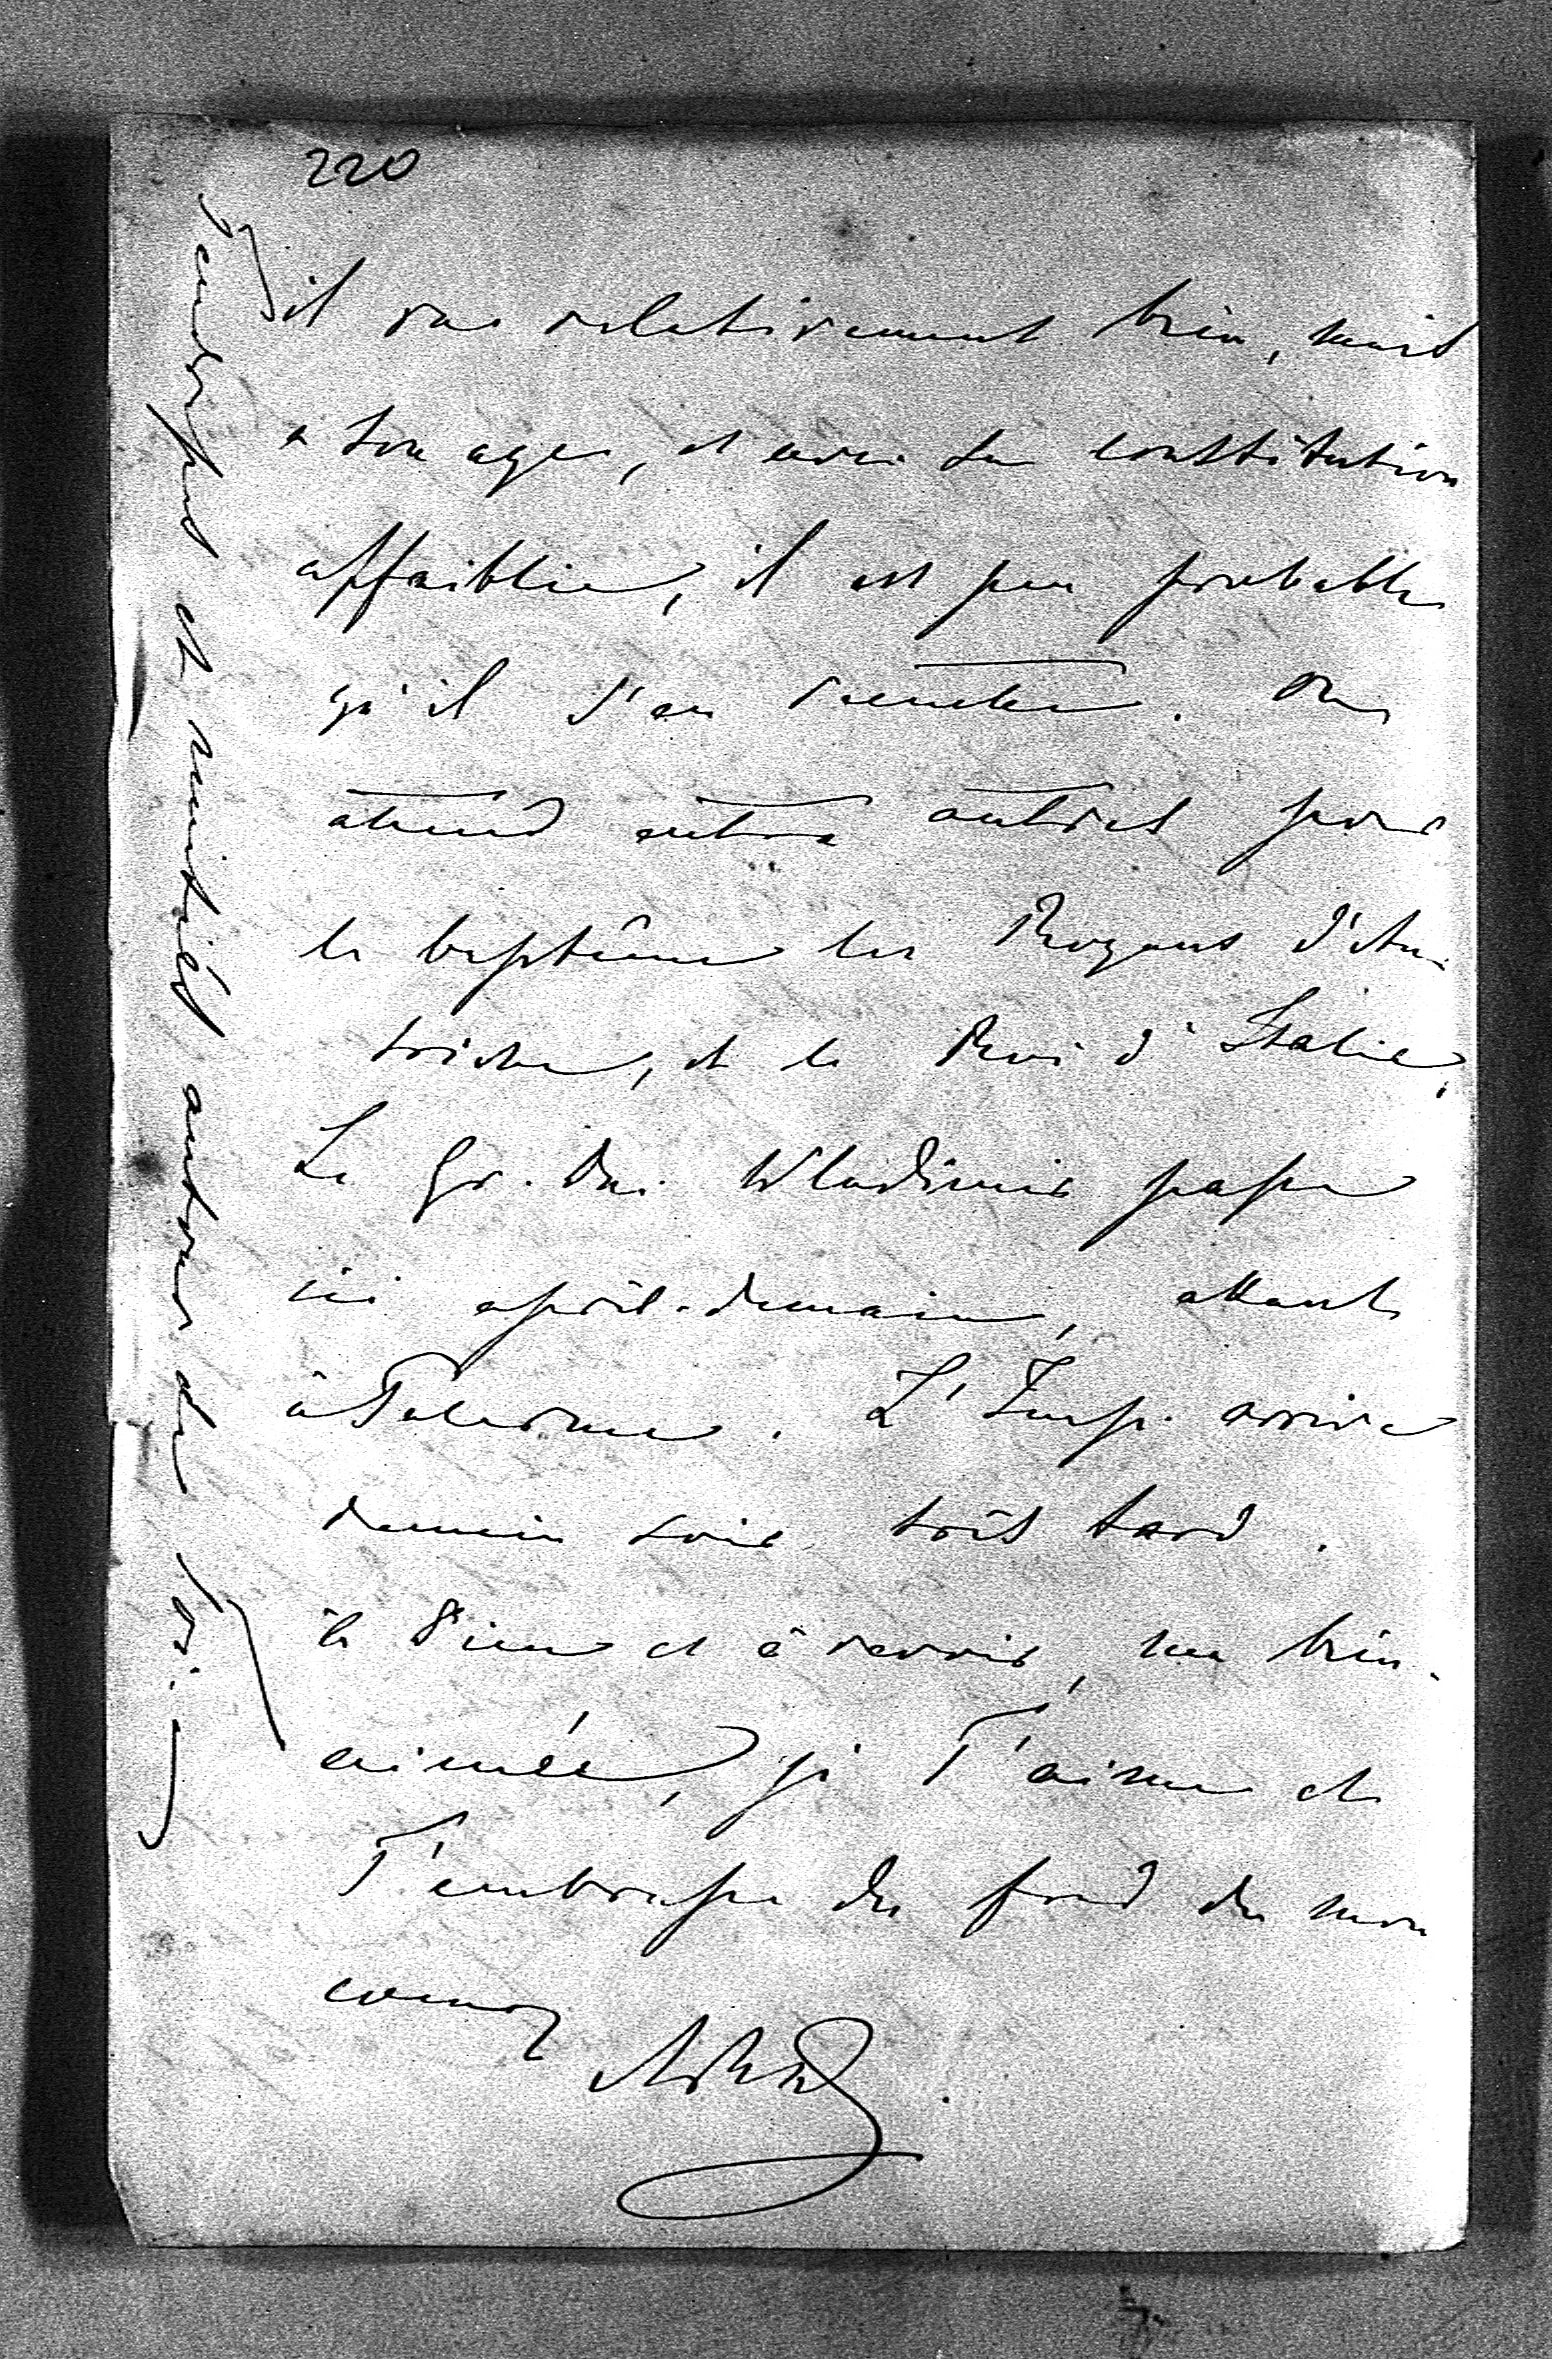 220
il va relativement bien, mais
a son age, et avec sa constitution
affaiblie, il est peu probable
qu'il s'en remette. On
attend entre autres pour
le baptême les Royaus d'Au-
triche, et le Roi d'Italie.
Le Gr. Duc Wladimir passe
ici après-demain, allant
à Palerme. L'Imp. arrive
demain soir très tard.
à Dieu et à revoir, ma bien-
aimée, je T'aime et
T'embrasse du fond de mon
coeur
et autour de